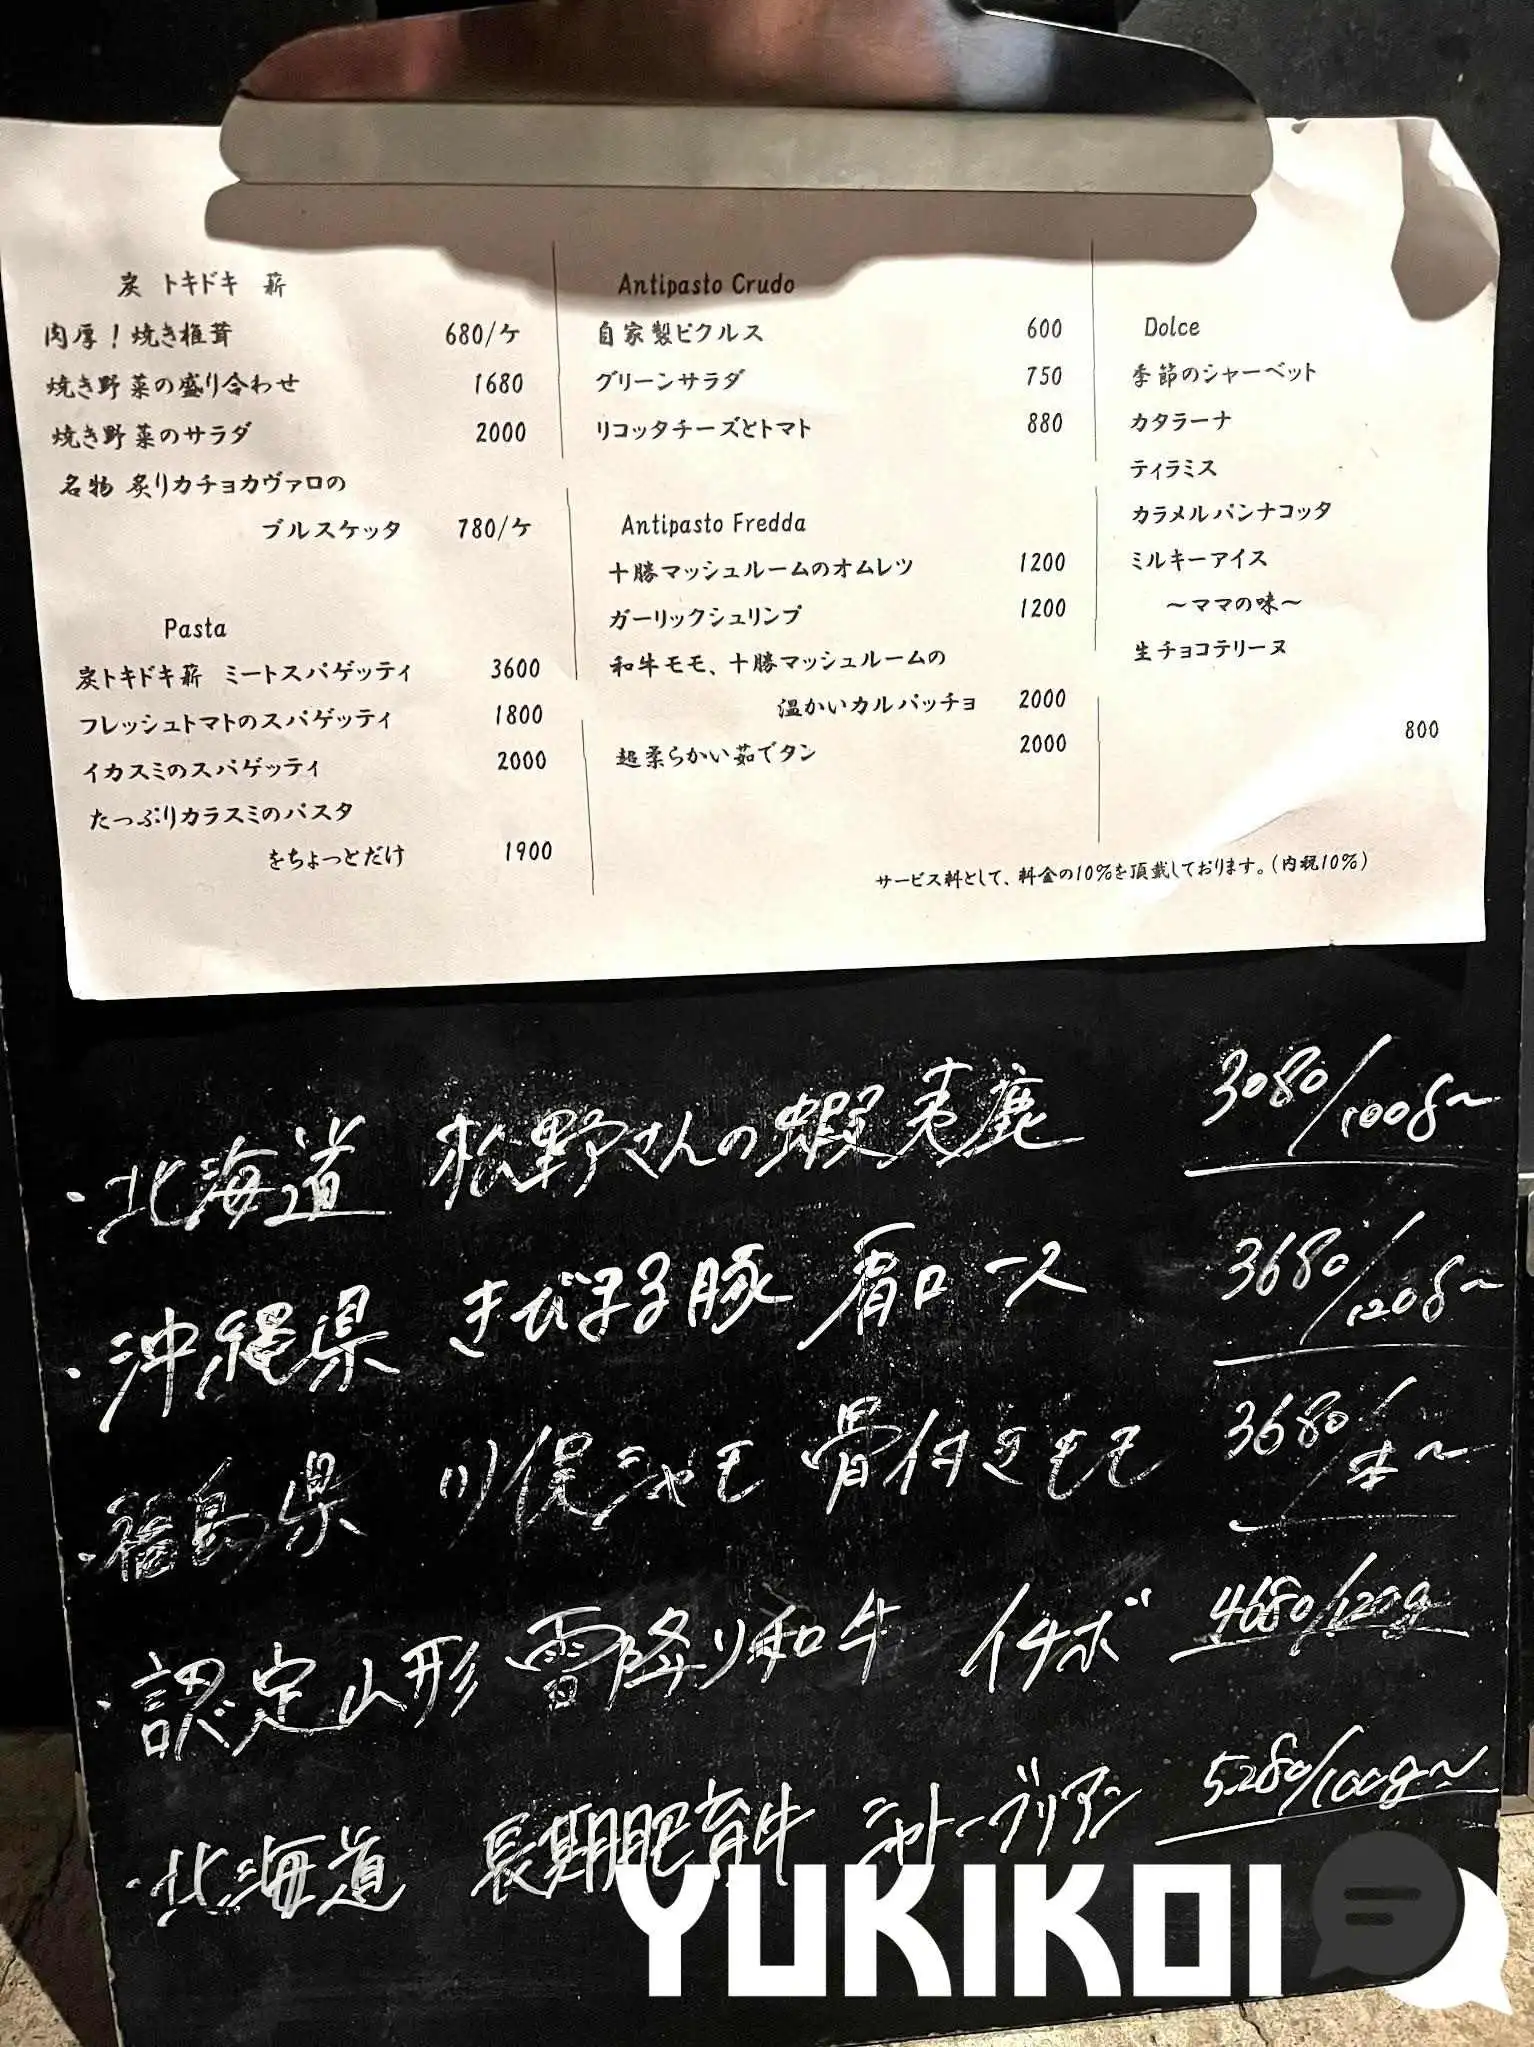 炭 トキドキ 薪
肉厚！焼き椎茸 680/ケ
焼き野菜の盛り合わせ 1680
焼き野菜のサラダ 2000
名物 炙りカチョカヴァロの
ブルスケッタ 780/ケ
Pasta
炭トキドキ薪 ミートスパゲッティ 3600
フレッシュトマトのスパゲッティ 1800
イカスミのスパゲッティ 2000
たっぷりカラスミのパスタ
をちょっとだけ 1900
Antipasto Crudo
自家製ピクルス 600
グリーンサラダ 750
リコッタチーズとトマト 880
Antipasto Fredda
十勝マッシュルームのオムレツ 1200
ガーリックシュリンプ 1200
和牛モモ、十勝マッシュルームの
温かいカルパッチョ 2000
超柔らかい茹でタン 2000
Dolce
季節のシャーベット
カタラーナ
ティラミス
カラメルパンナコッタ
ミルキーアイス
〜ママの味〜
生チョコテリーヌ
800
サービス料として、料金の10%を頂戴しております。(内税10%)
・北海道 松野さんの蝦夷鹿 3080/100g〜
・沖縄県 きびまる豚 肩ロース 3680/120g〜
・福島県 川俣シャモ 骨付きモモ 3680/本〜
・認定山形 雪降り和牛 イチボ 4680/120g
・北海道 長期肥育牛 シャトーブリアン 5280/100g〜
YUKIKOI